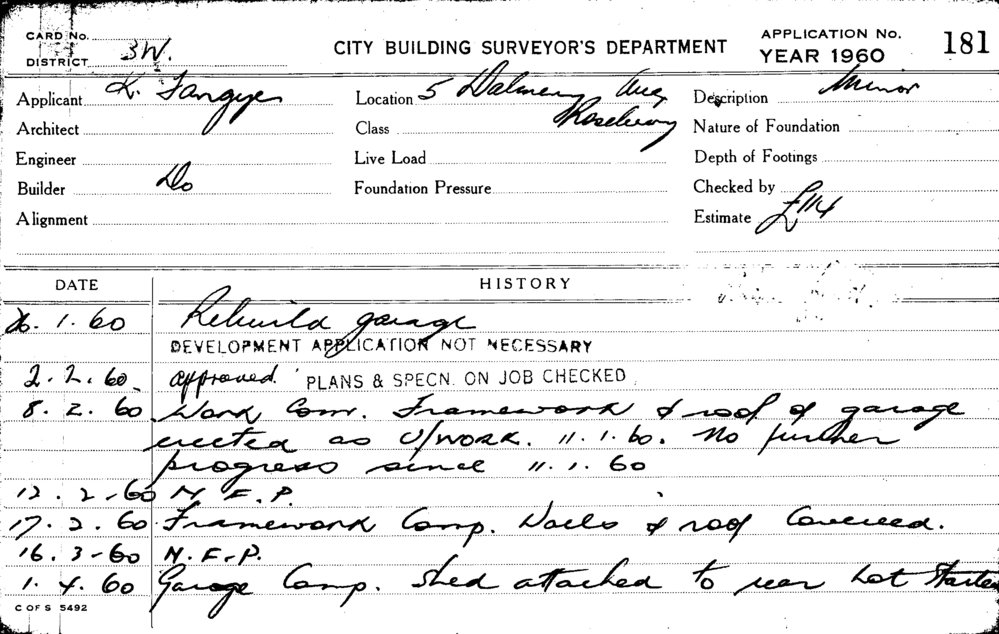 CARD No.
DISTRICT 3W.
CITY BUILDING SURVEYOR'S DEPARTMENT
APPLICATION No. 181
YEAR 1960
Applicant K.
Location 5 Dalmeny Ave Rosebery
Description Minor
Architect
Class
Nature of Foundation
Engineer
Live Load
Depth of Footings
Builder Do
Foundation Pressure
Checked by
Alignment
Estimate £114
DATE HISTORY
26.1.60 Rebuild garage
DEVELOPMENT APPLICATION NOT NECESSARY
2.2.60 approved. PLANS & SPECN. ON JOB CHECKED
8.2.60 Work Com. Framework & roof of garage
erected as U/WORK. 11.1.60. No further
progress since 11.1.60
12.2-60 N.F.P.
17.2.60 Framework Comp. Walls & roof Covered.
16.3-60 N.F.P.
1.4.60 Garage Comp. Shed attached to rear not started
C OF S 5492